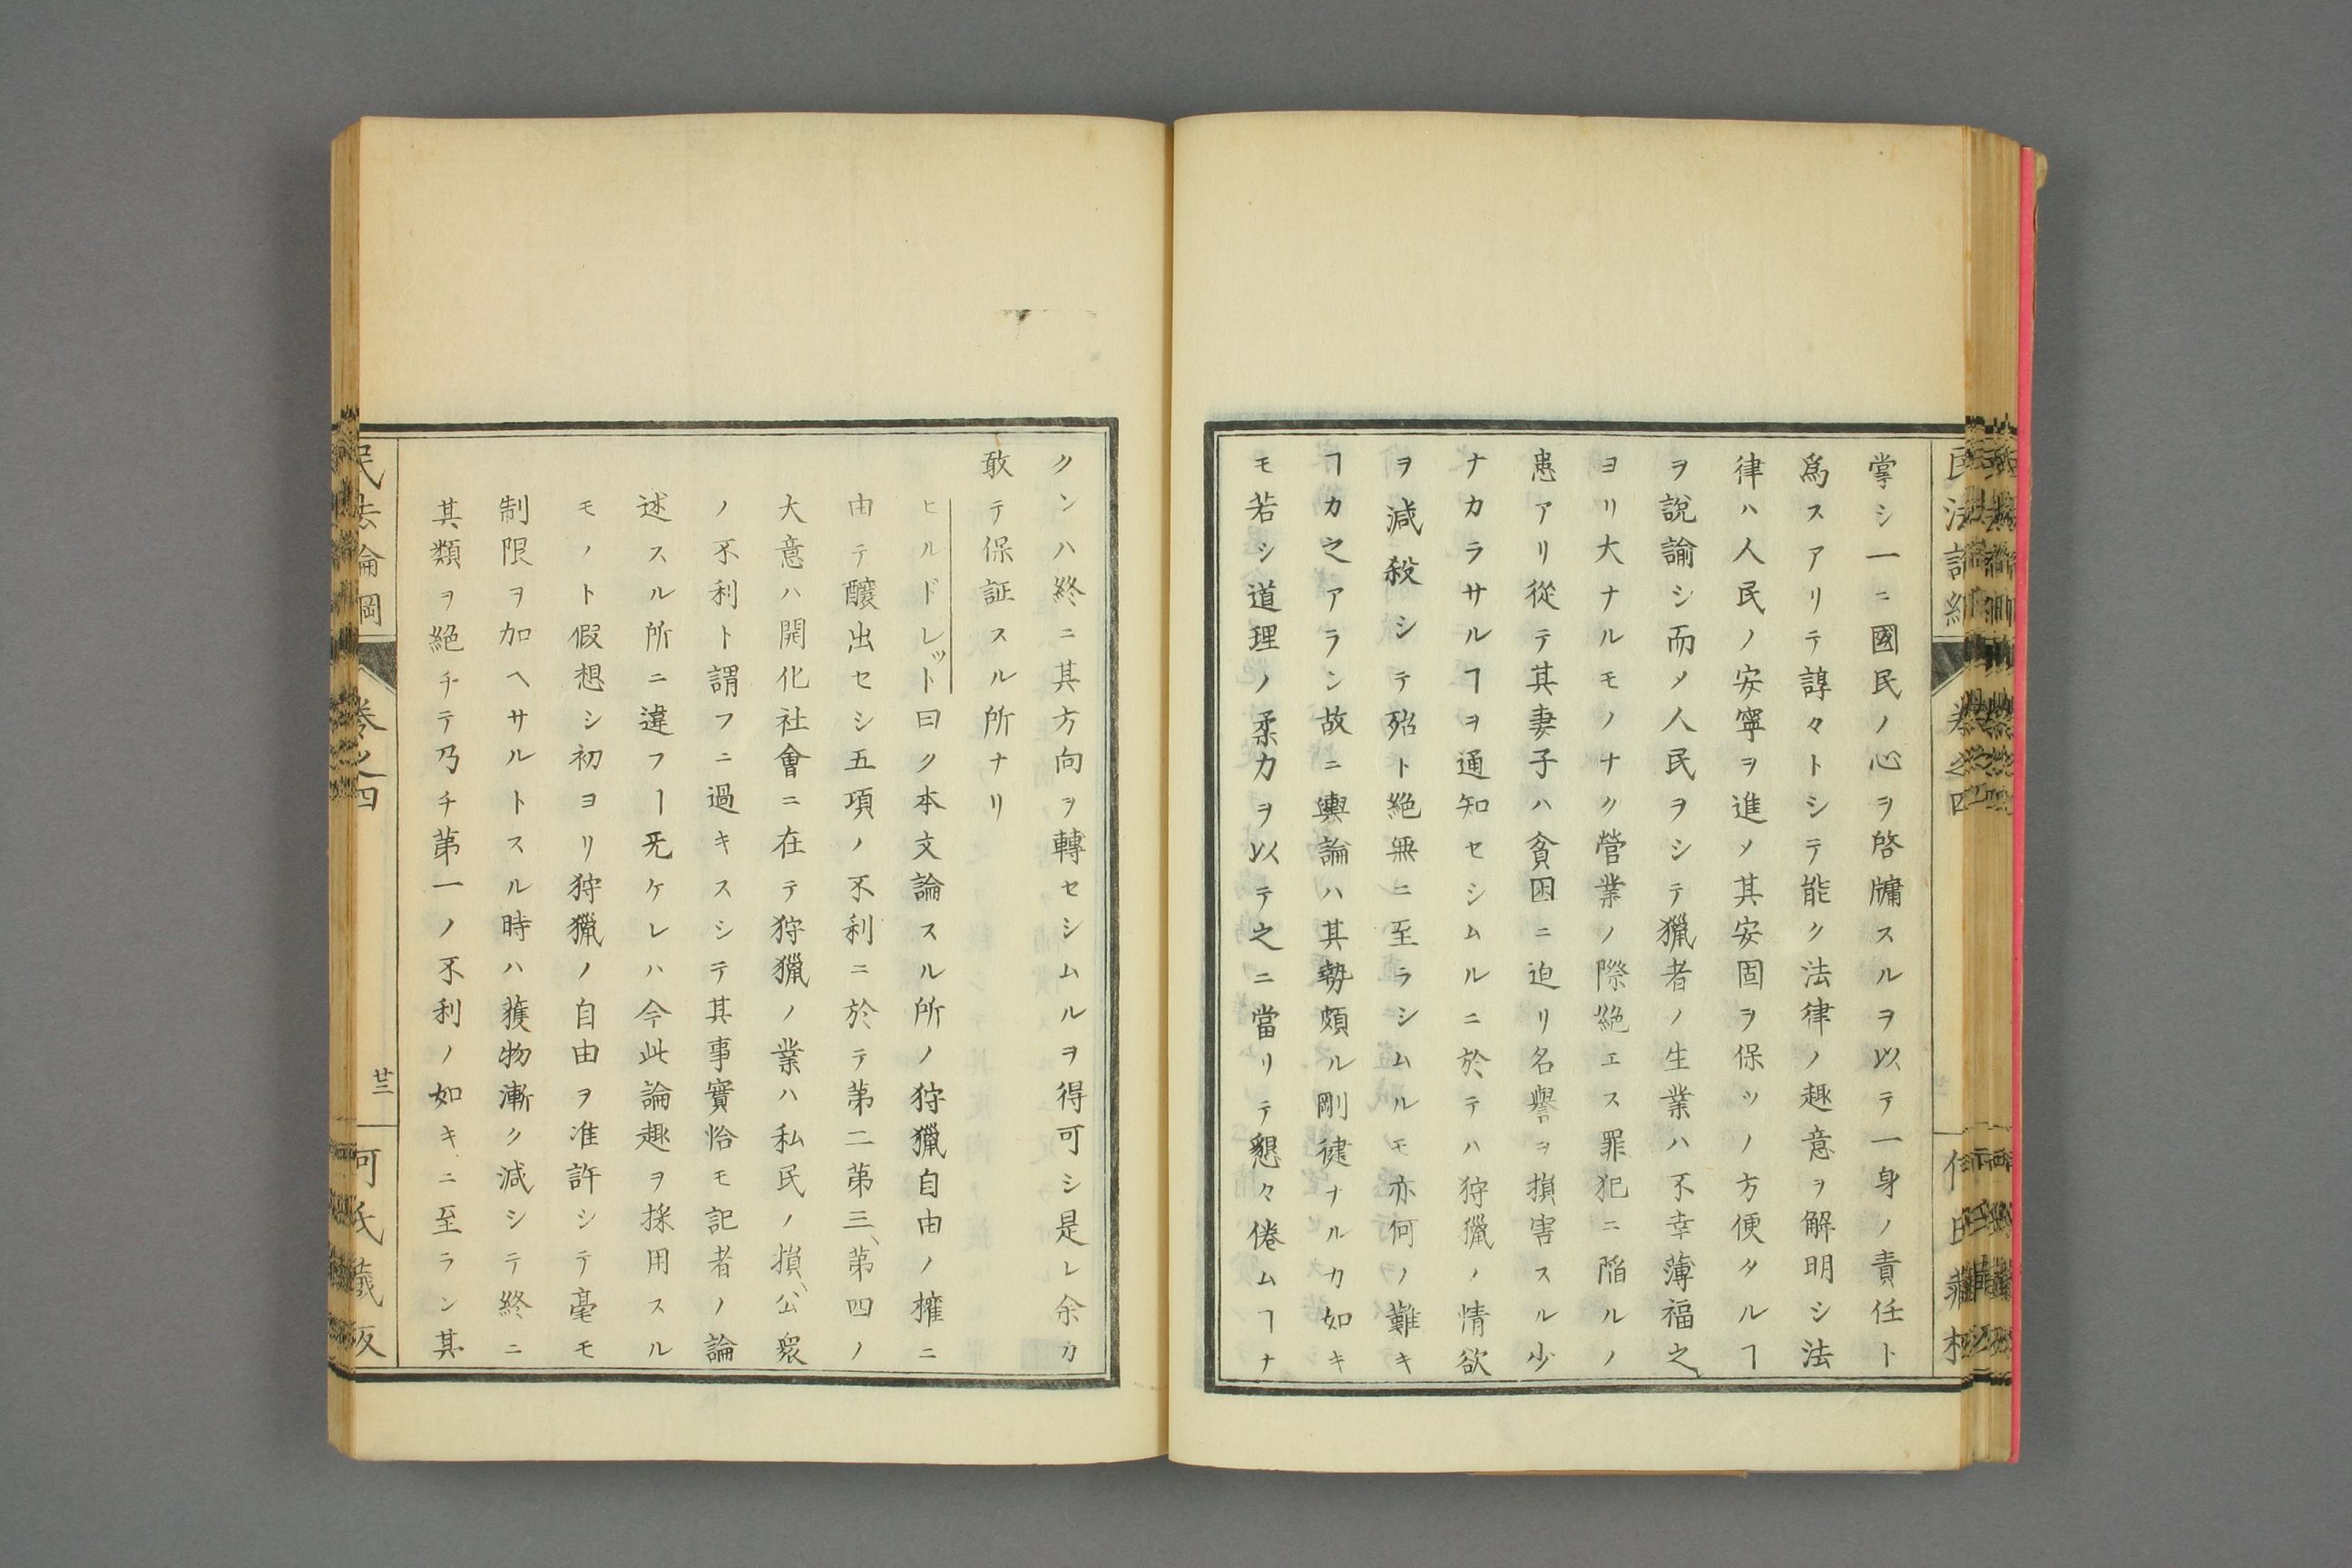 掌シ一ニ國民ノ心ヲ啓牗スルヲ以テ一身ノ責任ト
爲スアリテ諄々トシテ能ク法律ノ趣意ヲ解明シ法
律ハ人民ノ安寧ヲ進メ其安固ヲ保ツノ方便タルヿ
ヲ說諭シ而メ人民ヲシテ獵者ノ生業ハ不幸薄福之
ヨリ大ナルモノナク營業ノ際絶エス罪犯ニ陷ルノ
患アリ從テ其妻子ハ貪困ニ迫リ名譽ヲ損害スル少
ナカラサルヿヲ通知セシムルニ於テハ狩獵ノ情欲
ヲ減殺シテ殆ト絶無ニ至ラシムルモ亦何ノ難キ
ヿカ之アラン故ニ輿論ハ其勢頗ル剛健ナルカ如キ
モ若シ道理ノ柔力ヲ以テ之ニ當リテ懇々倦ムヿナ
クンハ終ニ其方向ヲ轉セシムルヲ得可シ是レ余カ
敢テ保証スル所ナリ
ヒルドレット曰ク本文論スル所ノ狩獵自由ノ権ニ
由テ釀出セシ五項ノ不利ニ於テ第二第三、第四ノ
大意ハ開化社會ニ在テ狩獵ノ業ハ私民ノ損、公衆
ノ不利ト謂フニ過キスシテ其事實恰モ記者ノ論
述スル所ニ違フー旡ケレハ今此論趣ヲ採用スル
モノト假想シ初ヨリ狩獵ノ自由ヲ准許シテ毫モ
制限ヲ加ヘサルトスル時ハ獲物漸ク減シテ終ニ
其類ヲ絶チテ乃チ第一ノ不利ノ如キニ至ラン其
民法論綱
卷之四
廿三
何氏藏版